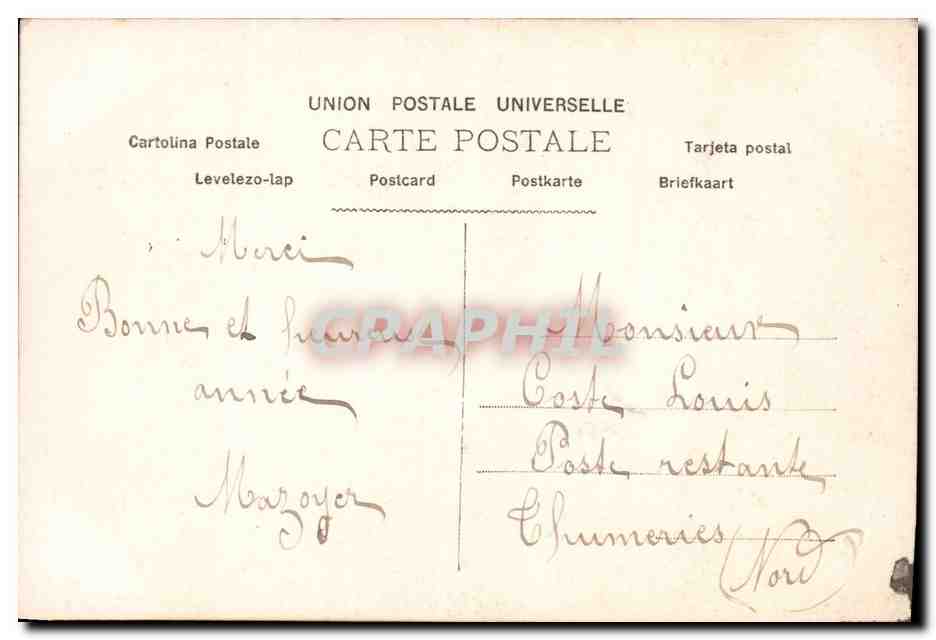 UNION POSTALE UNIVERSELLE
CARTE POSTALE
Cartolina Postale
Tarjeta postal
Levelezo-lap Postcard Postkarte Briefkaart
Merci
Bonne et heureuse
année
Mazoyer
CPAPHIL
Monsieur
Coste Louis
Poste restante
Thumeries
(Nord)